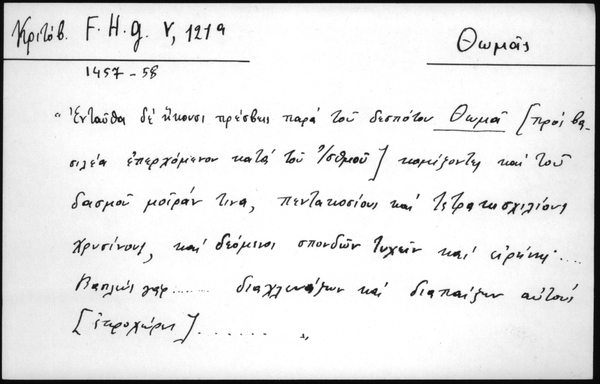 Κριτόβ. F.H.g. V, 121a
Θωμᾶς
1457-58
"Ἐνταῦθα δέ ἥκουσι πρέσβεις παρά τοῦ δεσπότου Θωμᾶ [πρός βα-
σιλέα ἐπερχόμενον κατά τοῦ Ἰσθμοῦ] κομίζοντες καί τοῦ
δασμοῦ μοῖράν τινα, πεντακοσίους καί τετρακισχιλίους
χρυσίνους, καί δεόμενοι σπονδῶν τυχεῖν καί εἰρήνης....
Βασιλεύς γάρ........ διαχλευάζων καί διαπαίζων αὐτούς
[ ]....... "